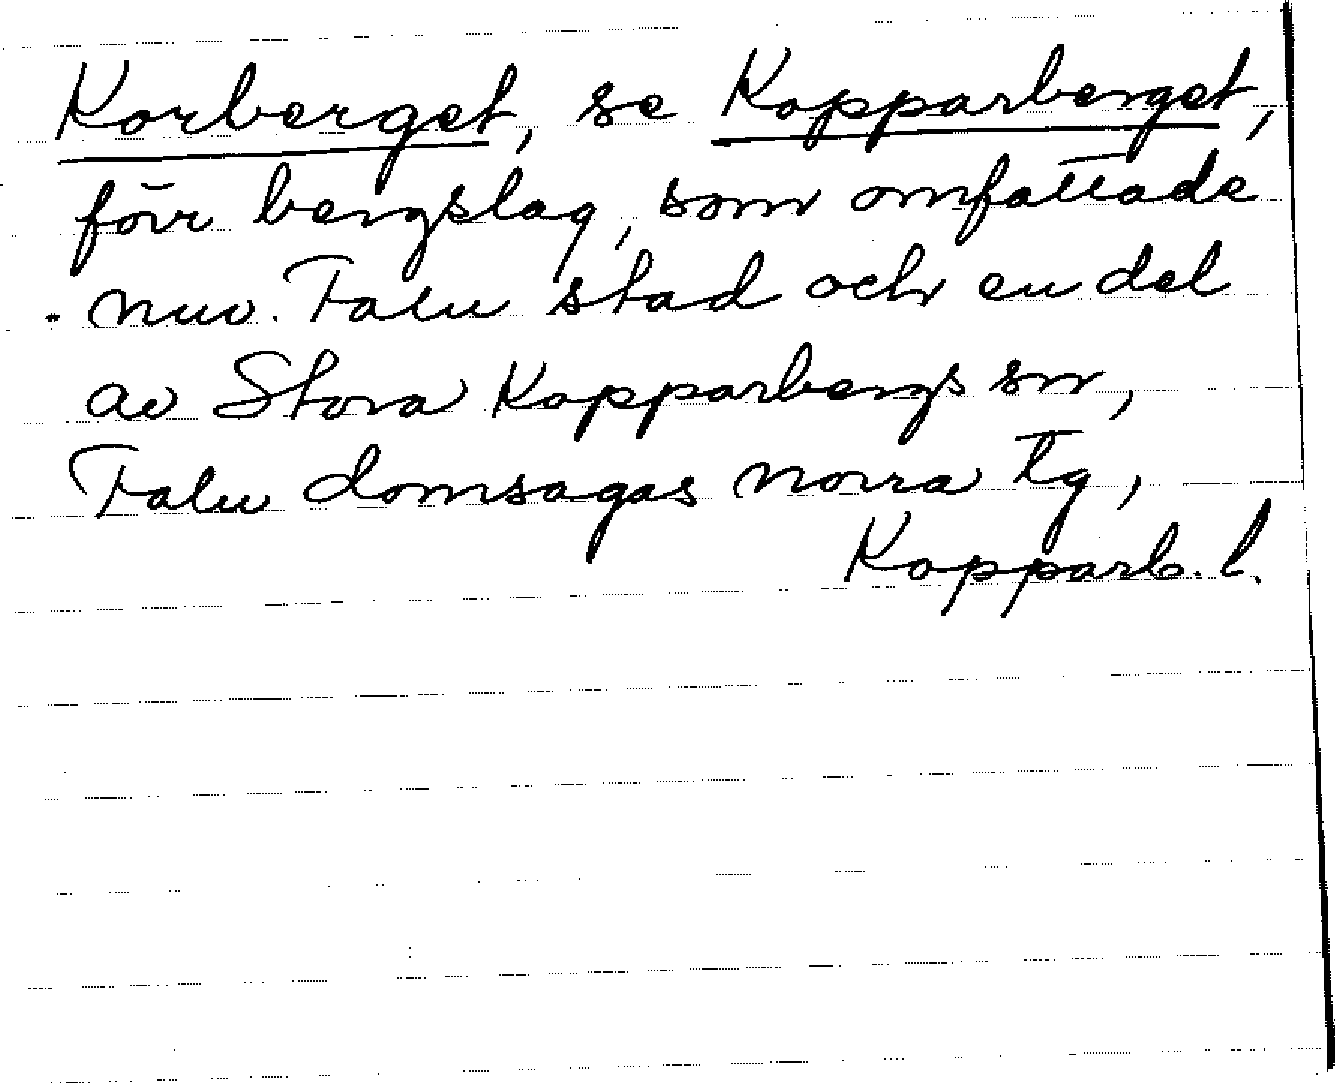 Korberget, se Kopparberget,
förr bergslag, som omfattade
nuv. Falu stad och en del
av Stora Kopparbergs sn,
Falu domsagas norra tg,
Kopparb. l.